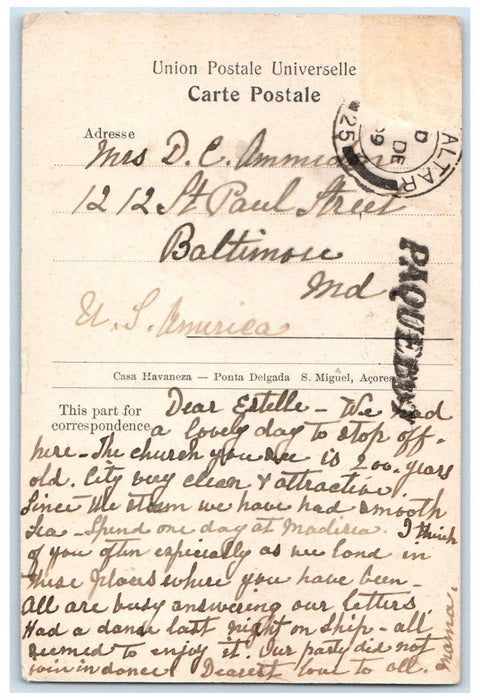 Union Postale Universelle
Carte Postale
Adresse
Mrs D. C.
1212 St Paul Street
Baltimore
Md
U. S. America
ALTAR
D
DE
09
25
PAQUEBOT
Casa Havaneza — Ponta Delgada S. Miguel, Açores
This part for
correspondence
Dear Estelle - We had
a lovely day to stop off-
here - The church you see is 200. years
old. City very clean & attractive.
Since the storm we have had smooth
Sea - Spend one day at Madiera. I think
of you often especially as we land in
these places where you have been -
All are busy answering our letters,
Had a dance last night on ship - all
seemed to enjoy it. Our party did not
join in dance. Dearest love to all.
Mama.